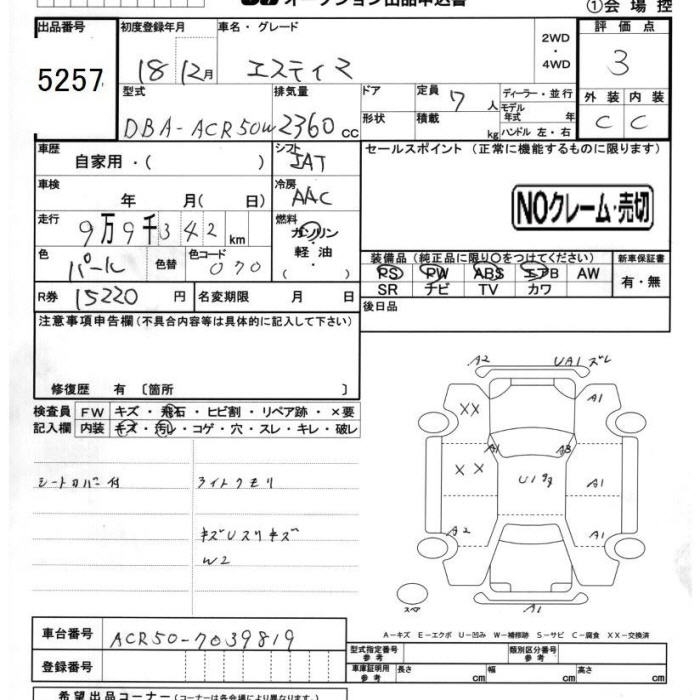 オークション出品申込書
①会場控
出品番号 初度登録年月 車名・グレード 2WD・4WD 評価点
5257 18 12月 エスティマ 3
型式 排気量 ドア 定員 7人 ディーラー・並行 外装 内装
DBA-ACR50W 2360cc 形状 積載 kg モデル年式 年 C C
ハンドル 左・右
車歴 自家用・( ) シフト IAT セールスポイント (正常に機能するものに限ります)
車検 年 月( 日) 冷房 AAC
NOクレーム・売切
走行 9万9千342km 燃料 ガソリン・軽油・( )
色 パール 色替 色コード 070
装備品 (純正品に限り○をつけてください) 新車保証書
PS PW ABS エアB AW 有・無
SR ナビ TV カワ
R券 15220円 名変期限 月 日 後日品
注意事項申告欄 (不具合内容等は具体的に記入して下さい)
修復歴 有 〔箇所 〕
検査員 FW キズ・飛石・ヒビ割・リペア跡・×要
記入欄 内装 キズ・汚レ・コゲ・穴・スレ・キレ・破レ
シートカバー付 ライトクモリ
キズUスリキズ
W2
A2 UA1 ズレ
XX A1
A1 A3
XX U1 A1
A2 A1
A1
スペア
A-キズ E-エクボ U-凹み W-補修跡 S-サビ C-腐食 XX-交換済
車台番号 ACR50-7039819
登録番号
型式指定番号 参考 類別区分番号 参考
車庫証明用 参考 長さ cm 幅 cm 高さ cm
希望出品コーナー (コーナーは各会場により異なります)